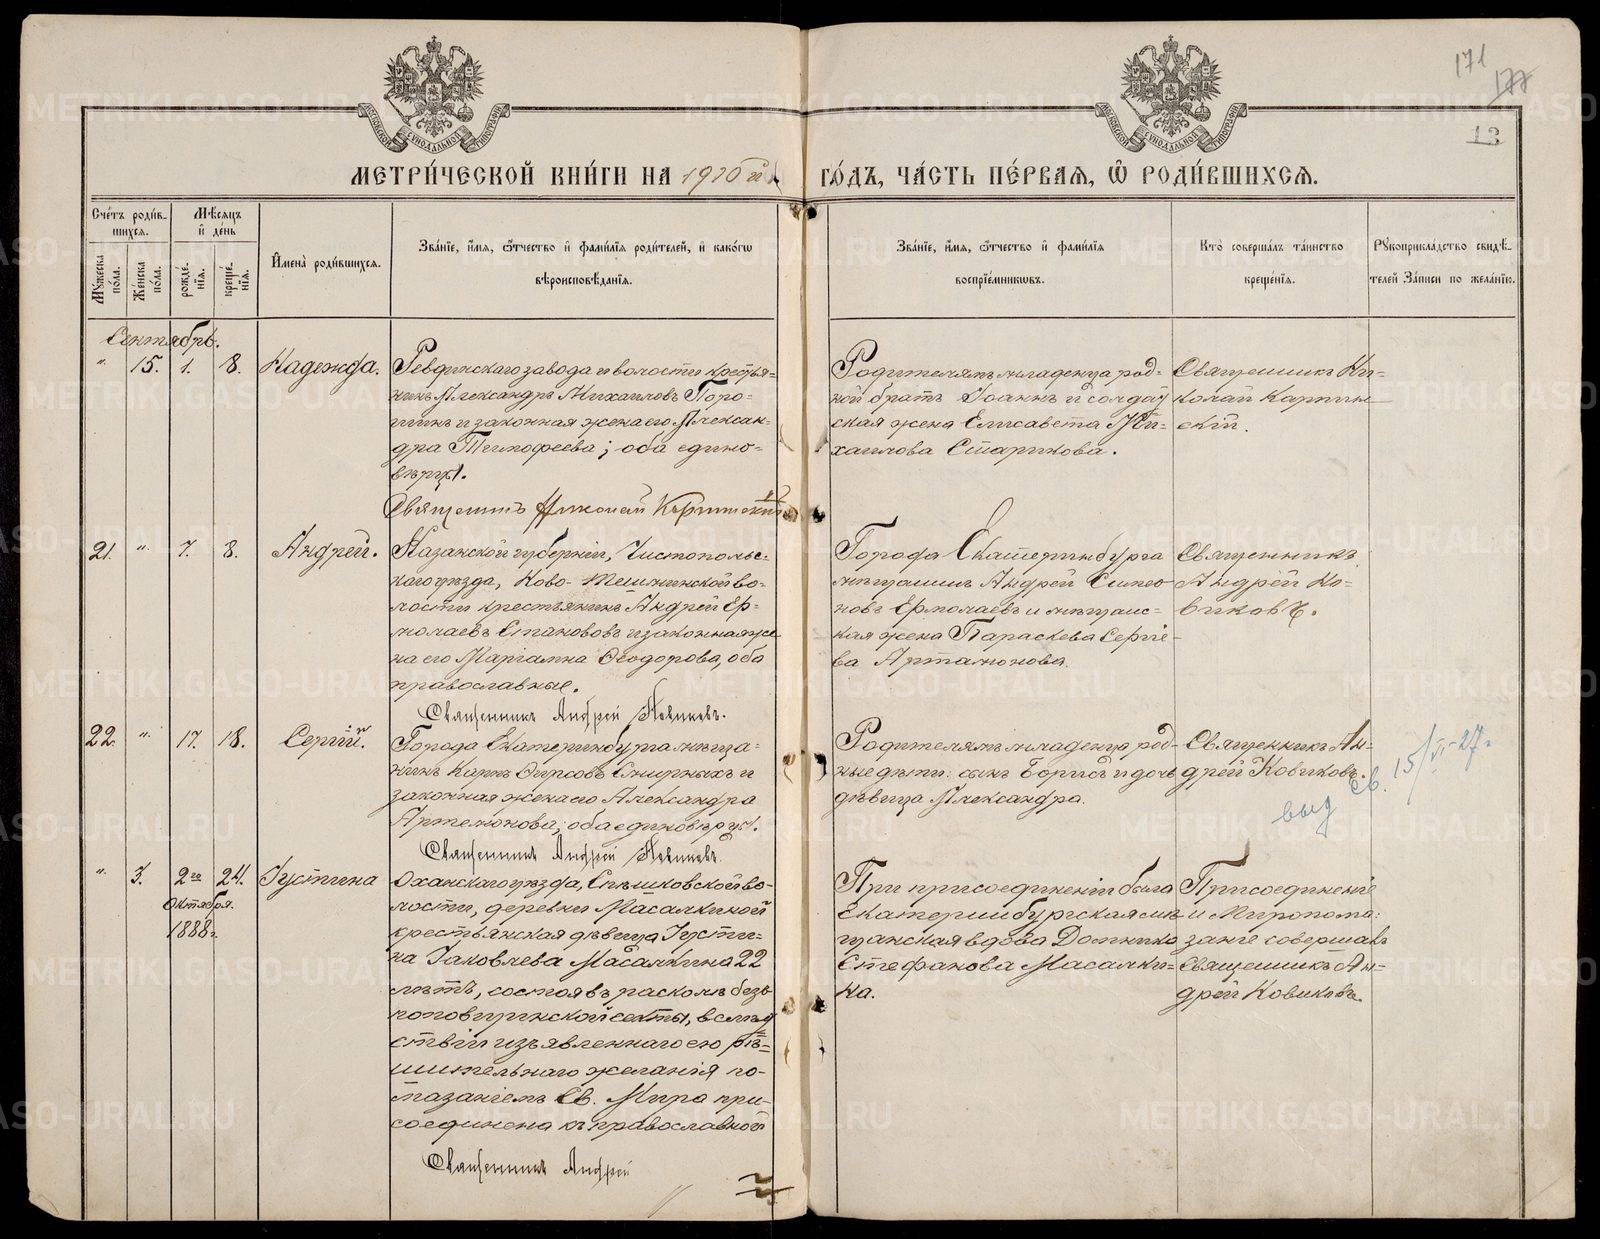 171
177
12
МЕТРИ́ЧЕСКОЙ КНИ́ГИ НА 1910й ГО́ДЪ, ЧА́СТЬ ПЕ́РВАѦ, Ѿ РОДИ́ВШИХСѦ.
Счетъ роди́вшихсѧ.
Мѣ́сѧцъ и де́нь
Мꙋ́жеска по́ла.
Же́нска по́ла.
рожде́нїѧ.
креще́нїѧ.
И҆мена̀ роди́вшихсѧ.
Зва́нїе, и҆́мѧ, ѻ҆́тчество и҆ фами́лїѧ роди́телей, и҆ како́гѡ
вѣроисповѣ́данїѧ.
Зва́нїе, и҆́мѧ, ѻ҆́тчество и҆ фами́лїѧ
воспрїе́мникѡвъ.
Кто̀ соверша́лъ та́инство
креще́нїѧ.
Рꙋкоприкла́дство свидѣ́-
телей За́писи по жела́нїю.
Сентябрь.
" 15. 1. 8. Надежда.
Ревдинскаго завода и волости крестья-
нинъ Александръ Михаиловъ Поро-
шинъ и законная жена его Алексан-
дра Тимофеева; оба едино-
вѣрцы.
Священникъ Николай Карпинский
Родителямъ младенца род-
ной братъ Іоаннъ и солдат-
ская жена Елисавета Ми-
хаилова Старикова.
Священникъ Ни-
колай Карпин-
скій.
21. " 7. 8. Андрей.
Казанской губерніи, Чистопольс-
каго уѣзда, Ново-Тешлинской во-
лости крестьянинъ Андрей Ер-
молаевъ Станововъ и законная же-
на его Маріамна Ѳеодорова, оба
православные.
Священникъ Андрей Новиковъ.
Города Екатеринбурга
мѣщанинъ Андрей Симео
новъ Ермолаевъ и мѣщанс-
кая жена Параскева Сергіе-
ва Артамонова.
Священникъ
Андрей Но-
виковъ.
22. " 17. 18. Сергій.
Города Екатеринбурга мѣща-
нинъ Карпъ Фирсовъ Смирныхъ и
законная жена его Александра
Артемонова; оба единовѣрцы.
Священникъ Андрей Новиковъ.
Родителямъ младенца род-
ные дѣти: сынъ Борисъ и дочь
дѣвица Александра.
Священникъ Ан-
дрей Новиковъ.
выд св. 15/VI-27г.
" 3. 2го 24. Іустина
Октября.
1888г.
Оханскаго уѣзда, Спѣшковской во-
лости, деревни Масалкиной
крестьянская дѣвица Іусти-
на Іаковлева Масалкина 22
лѣтъ, состоя въ расколѣ без-
поповщинской секты, вслѣд
ствіи изъявленнаго ею рѣ-
шительнаго желанія по-
мазаніемъ Св. Мира при-
соединена къ православной
Священникъ Андрей
При присоединеніи была
Екатеринбургская мѣ-
щанская вдова Домника
Стефанова Масалки-
на.
Присоединеніе
и Миропома-
заніе совершалъ
Священникъ Ан-
дрей Новиковъ